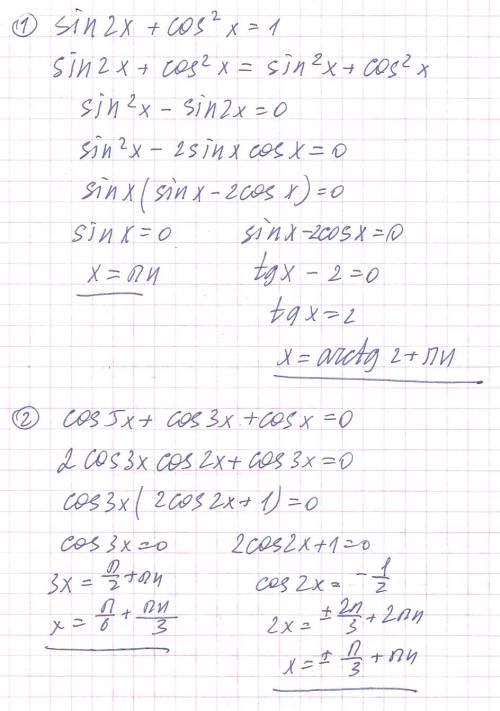 ① sin2x + cos²x = 1
sin2x + cos²x = sin²x + cos²x
sin²x - sin2x = 0
sin²x - 2sinx cosx = 0
sinx(sinx - 2cosx) = 0
sinx = 0 sinx - 2cosx = 0
x = πn tgx - 2 = 0
tgx = 2
x = arctg 2 + πn
② cos5x + cos3x + cosx = 0
2cos3x cos2x + cos3x = 0
cos3x(2cos2x + 1) = 0
cos3x = 0 2cos2x + 1 = 0
3x = π/2 + πn cos2x = -1/2
x = π/6 + πn/3 2x = ±2π/3 + 2πn
x = ±π/3 + πn